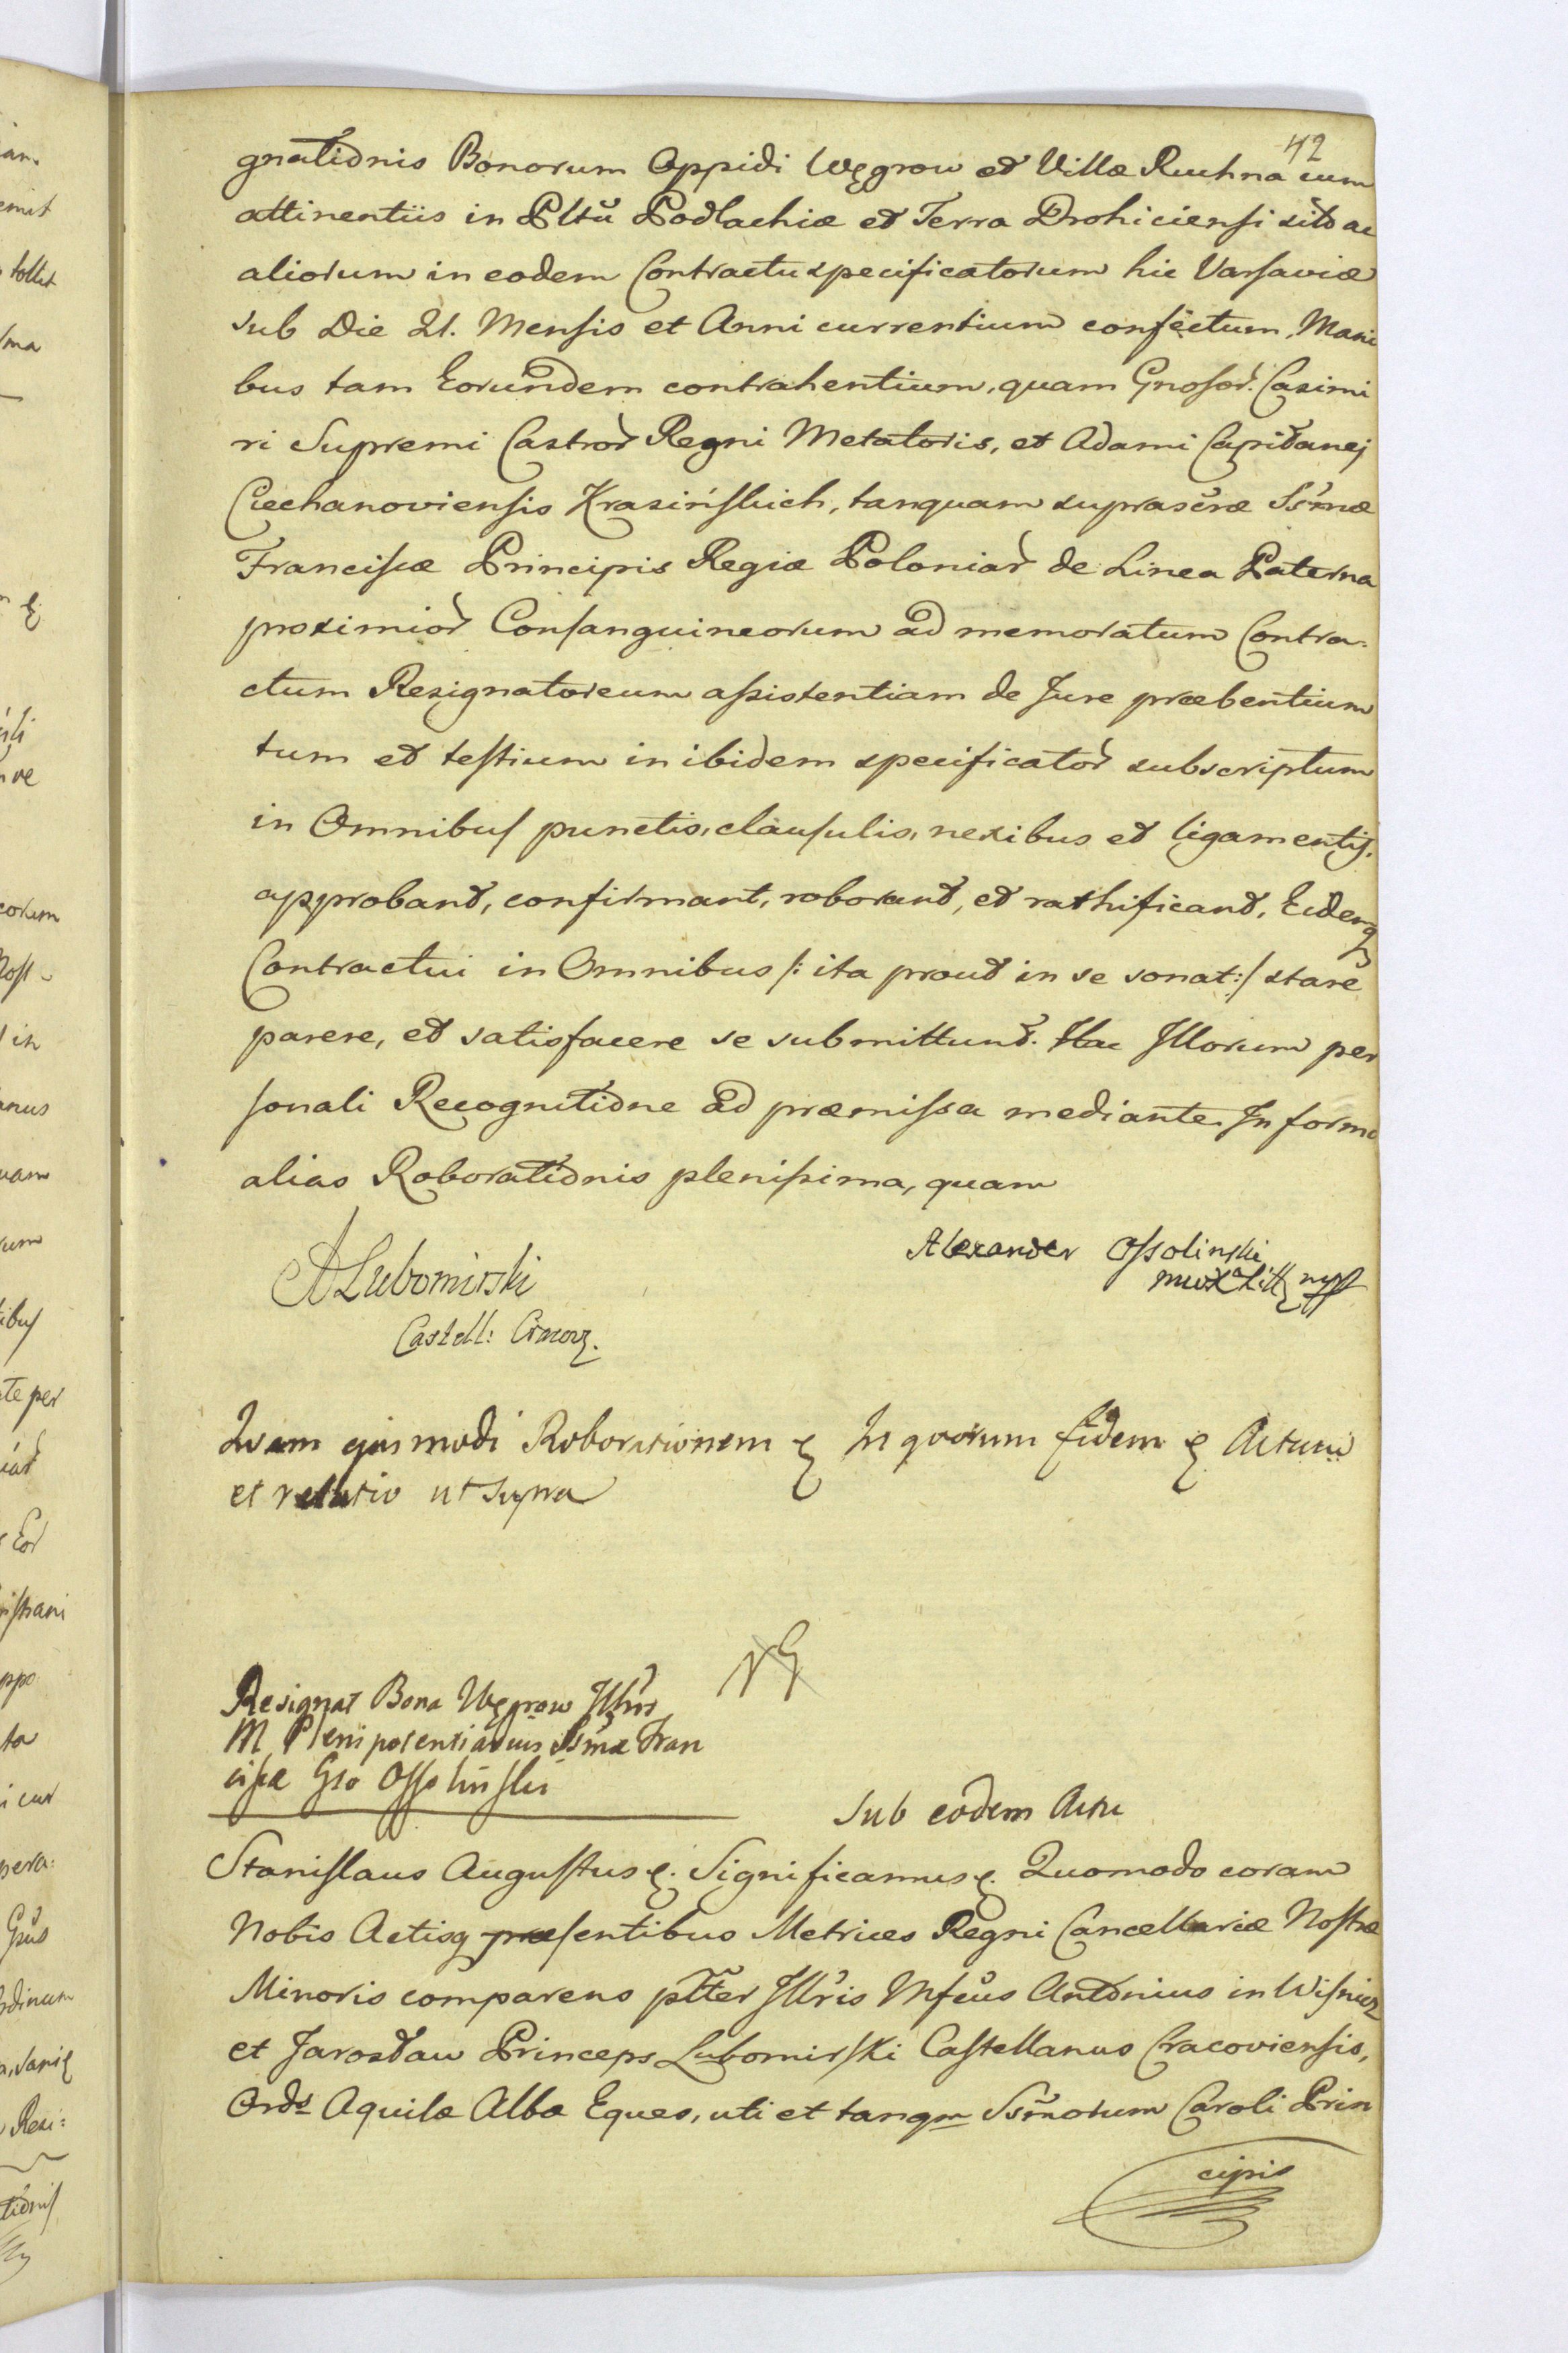 42
gnatiõnis Bonorum Oppidi Węgrow et Villæ Ruchna cum
attinentiis in Pltũ Podlachiæ et Terra Drohiciensi sito ac
aliorum in eodem Contractu specificatorum hic Varsaviæ
sub Die 21. Mensis et Anni currentium confectum, Mani
bus tam Eorundem contrahentium, quam Gnosor. Casimi
ri Supremi Castror Regni Metatoris, et Adami Capitanej
Ciechanoviensis Krasińskich, tanquam suprascræ Ssmæ
Franciscæ Principis Regiæ Poloniar de Linea Paterna
proximior Consanguineorum ad memoratum Contra-
ctum Resignatorium assistentiam de Jure præbentium
tum et testium inibidem specificator subscriptum
in Omnibus punctis, clausulis, nexibus et ligamentis.
approbant, confirmant, roborant, et rathificant, Eidemq
Contractui in Omnibus /: ita prout in se sonat :/ stare
parere, et satisfacere se submittunt. Hac Illorum per
sonali Recognitiõne ad præmissa mediante. In forma
alias Roboratiõnis plenissima, quam
ALubomirski
Castell: Cracov.
Alexander Ossolinski
Quam ejusmodi Roborationem In quorum fidem Actum
et relatio ut supra
Resignat Bona Węgrow Illris
M Plenipotentiarius Ssmæ Fran
ciscæ Gso Ossolinski
Sub eodem Actu
Stanislaus Augustus. Significamus. Quomodo coram
Nobis Actisq præsentibus Metrices Regni Cancellariæ Nostræ
Minoris comparens pltter Illris Mfcus Antonius in Wisnicz
et Jarosław Princeps Lubomirski Castellanus Cracoviensis,
Ords Aquilæ Albæ Eques, uti et tanqm Ssmorum Caroli Prin
cipis